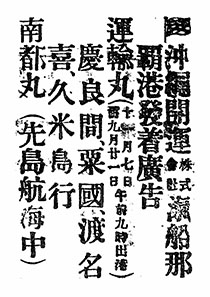 沖繩開運株式會社汽船那
覇港發着廣告
運輸丸(十一月七日舊九月廿一日午前九時出港)
慶良間、粟國、渡名
喜、久米島行
南都丸(先島航海中)